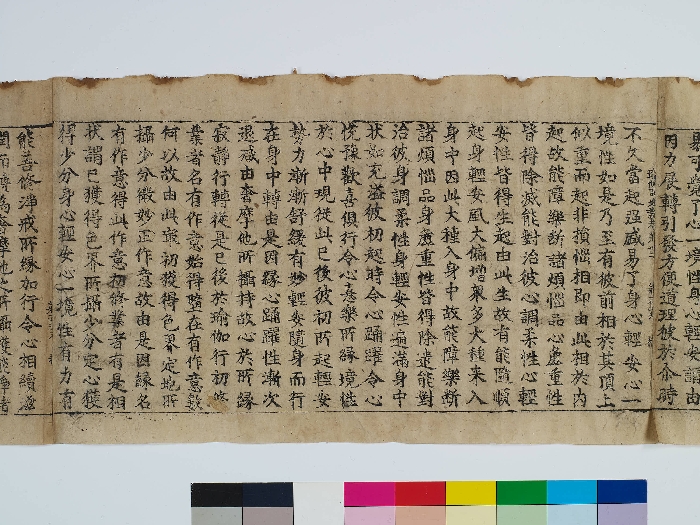 因力展轉引發方便道理彼於尒時
不久當起强盛易了身心輕安心一
境性如是乃至有彼前相於其頂上
似重而起非損惱相即由此相於內
起故能障樂斷諸煩惱品心麁重性
皆得除滅能對治彼心調柔性心輕
安性皆得生起由此生故有能隨順
起身輕安風大偏增衆多大種來入
身中因此大種入身中故能障樂斷
諸煩惱品身麁重性皆得除遣能對
治彼身調柔性身輕安性遍滿身中
狀如充溢彼初起時令心踊躍令心
悅豫歡喜俱行令心意樂所緣境性
於心中現從此已後彼初所起輕安
勢力漸漸舒緩有妙輕安隨身而行
在身中轉由是因緣心踊躍性漸次
退減由奢摩他所攝持故心於所緣
寂靜行轉從是已後於瑜伽行初修
業者名有作意始得墮在有作意數
何以故由此最初獲得色界定地所
攝少分微妙正作意故由是因緣名
有作意得此作意初修業者有是相
狀謂已獲得色界所攝少分定心獲
得少分身心輕安心一境性有力有
能善修淨戒所緣加行令心相續滋